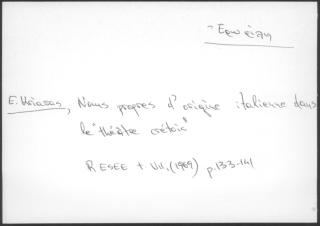 E. Kriaras, Noms propres d'origine italienne dans
le "théâtre crétois"
RESEE t. VII, (1969) p. 133-141